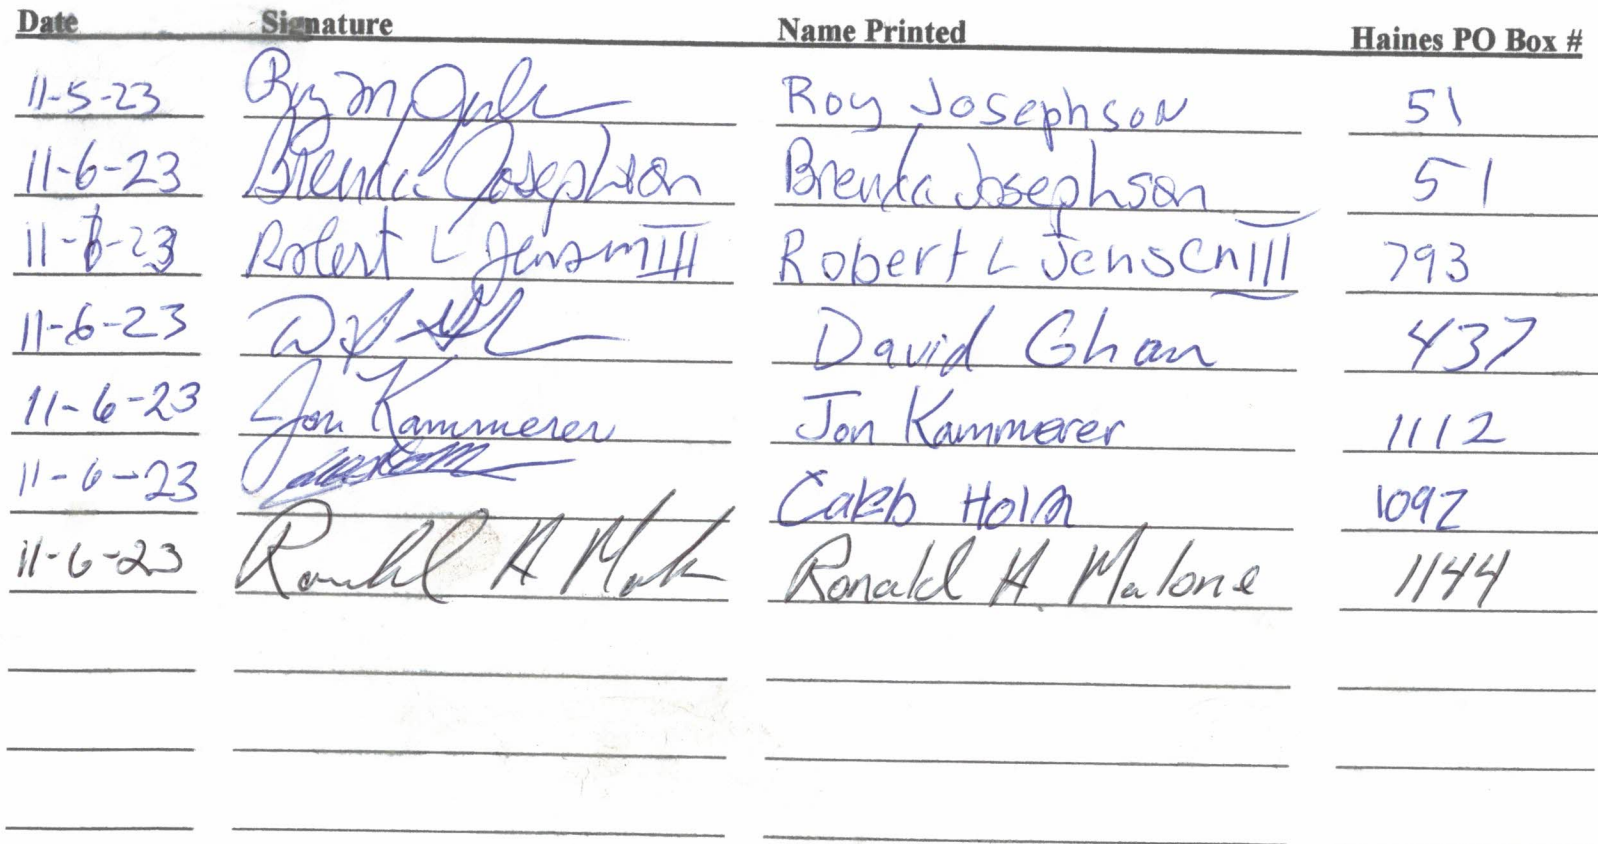 Date Signature Name Printed Haines PO Box #
11-5-23 Roy Josephson 51
11-6-23 Brenda Josephson Brenda Josephson 51
11-6-23 Robert L Jensen III Robert L Jensen III 793
11-6-23 David Ghan 437
11-6-23 Jon Kammerer Jon Kammerer 1112
11-6-23 Caleb Holm 1092
11-6-23 Ronald H Malone Ronald H. Malone 1144